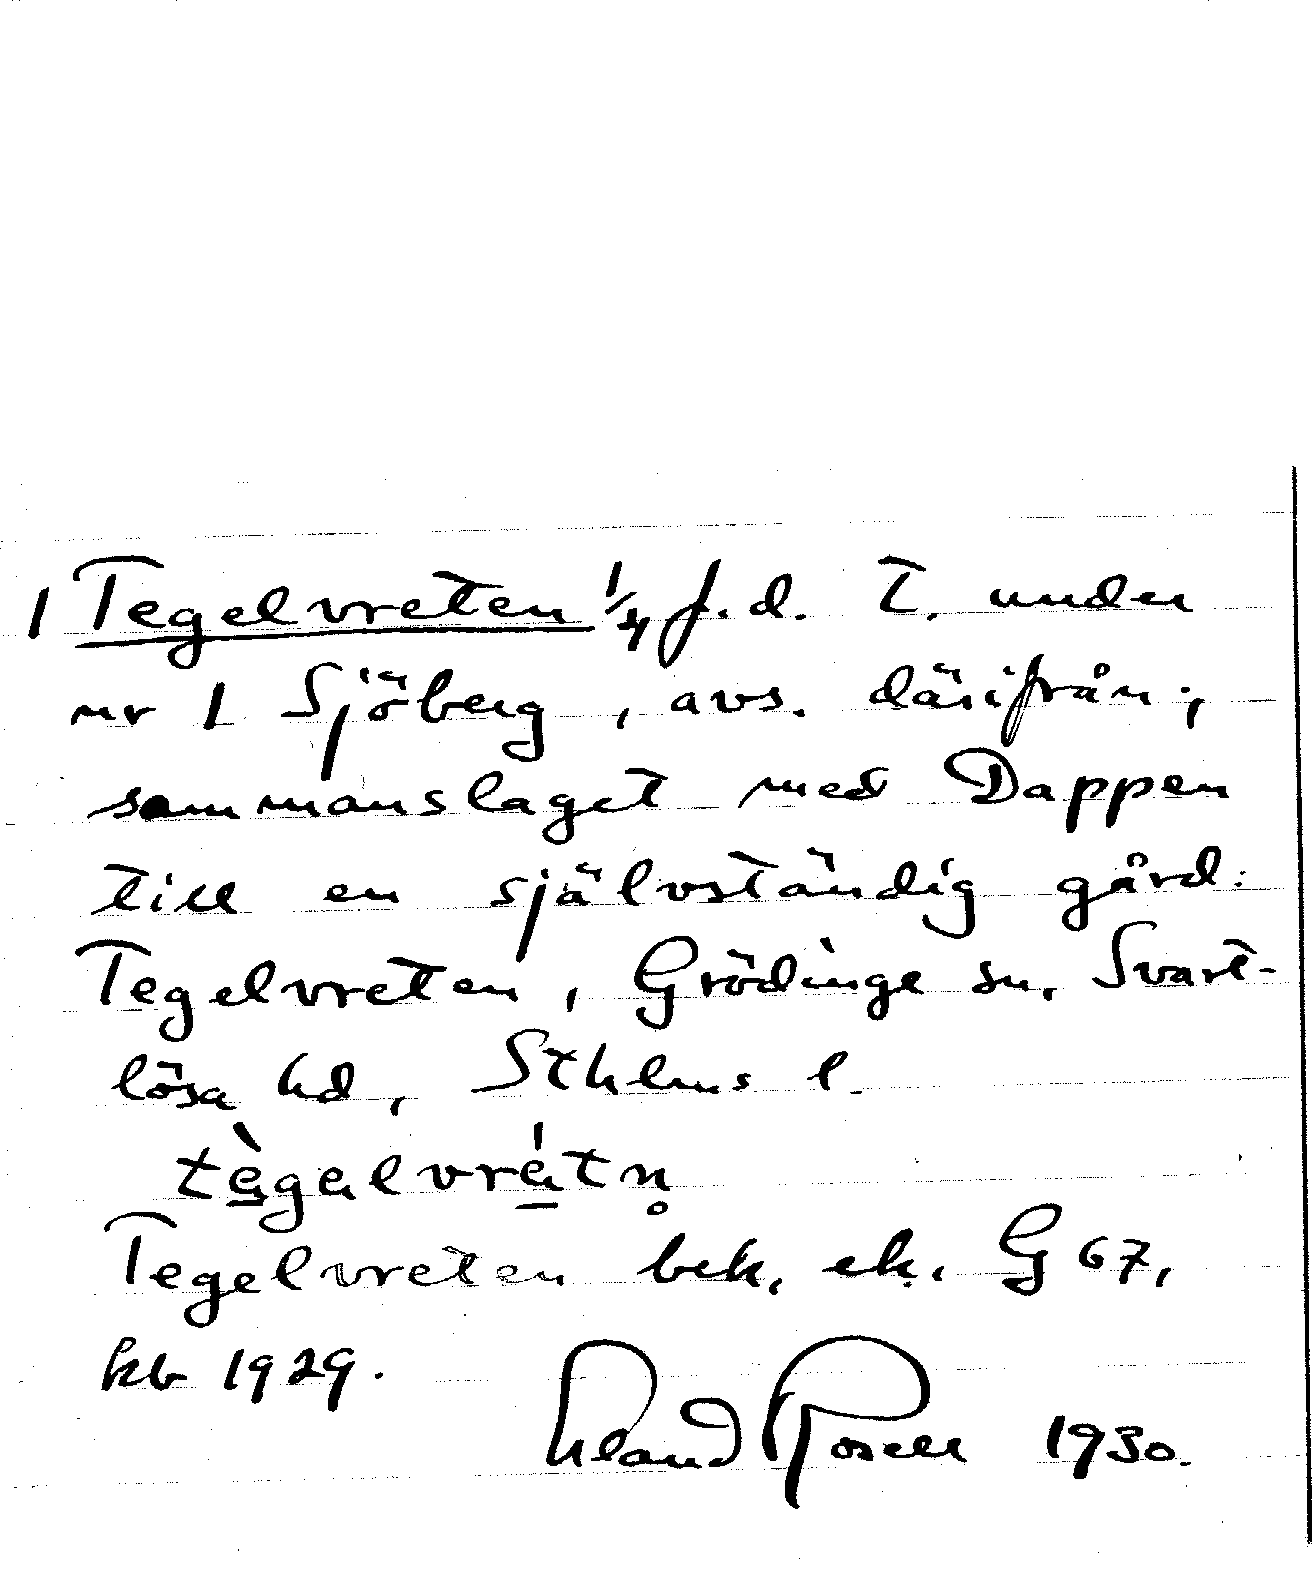 1 Tegelvreten ¼ f.d. T. under
nr 1 Sjöberg, avs. därifrån;
sammanslaget med Dappen
till en självständig gård:
Tegelvreten, Grödinge sn, Svart-
lösa hd, Sthlms l.
tègəlvrétn̥
Tegelvreten bek. ek. G 67,
kb 1929.
Erland Rosell 1930.